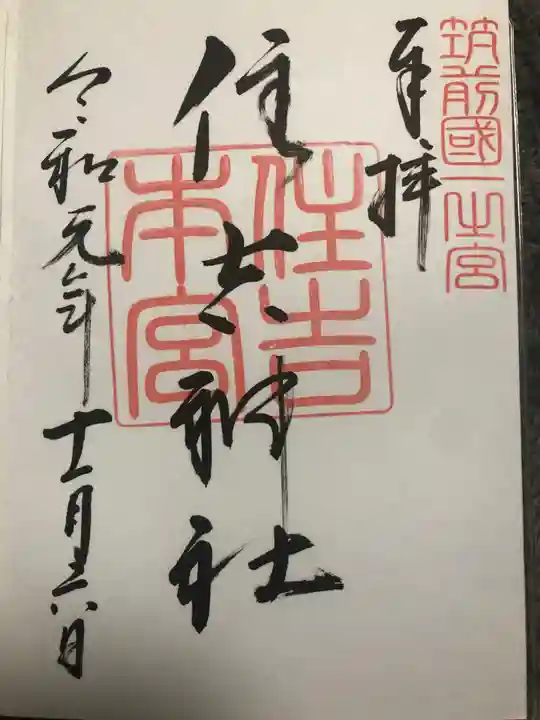 筑前國一之宮
奉拝
住吉神社
住吉本宮
令和元年十一月二十六日